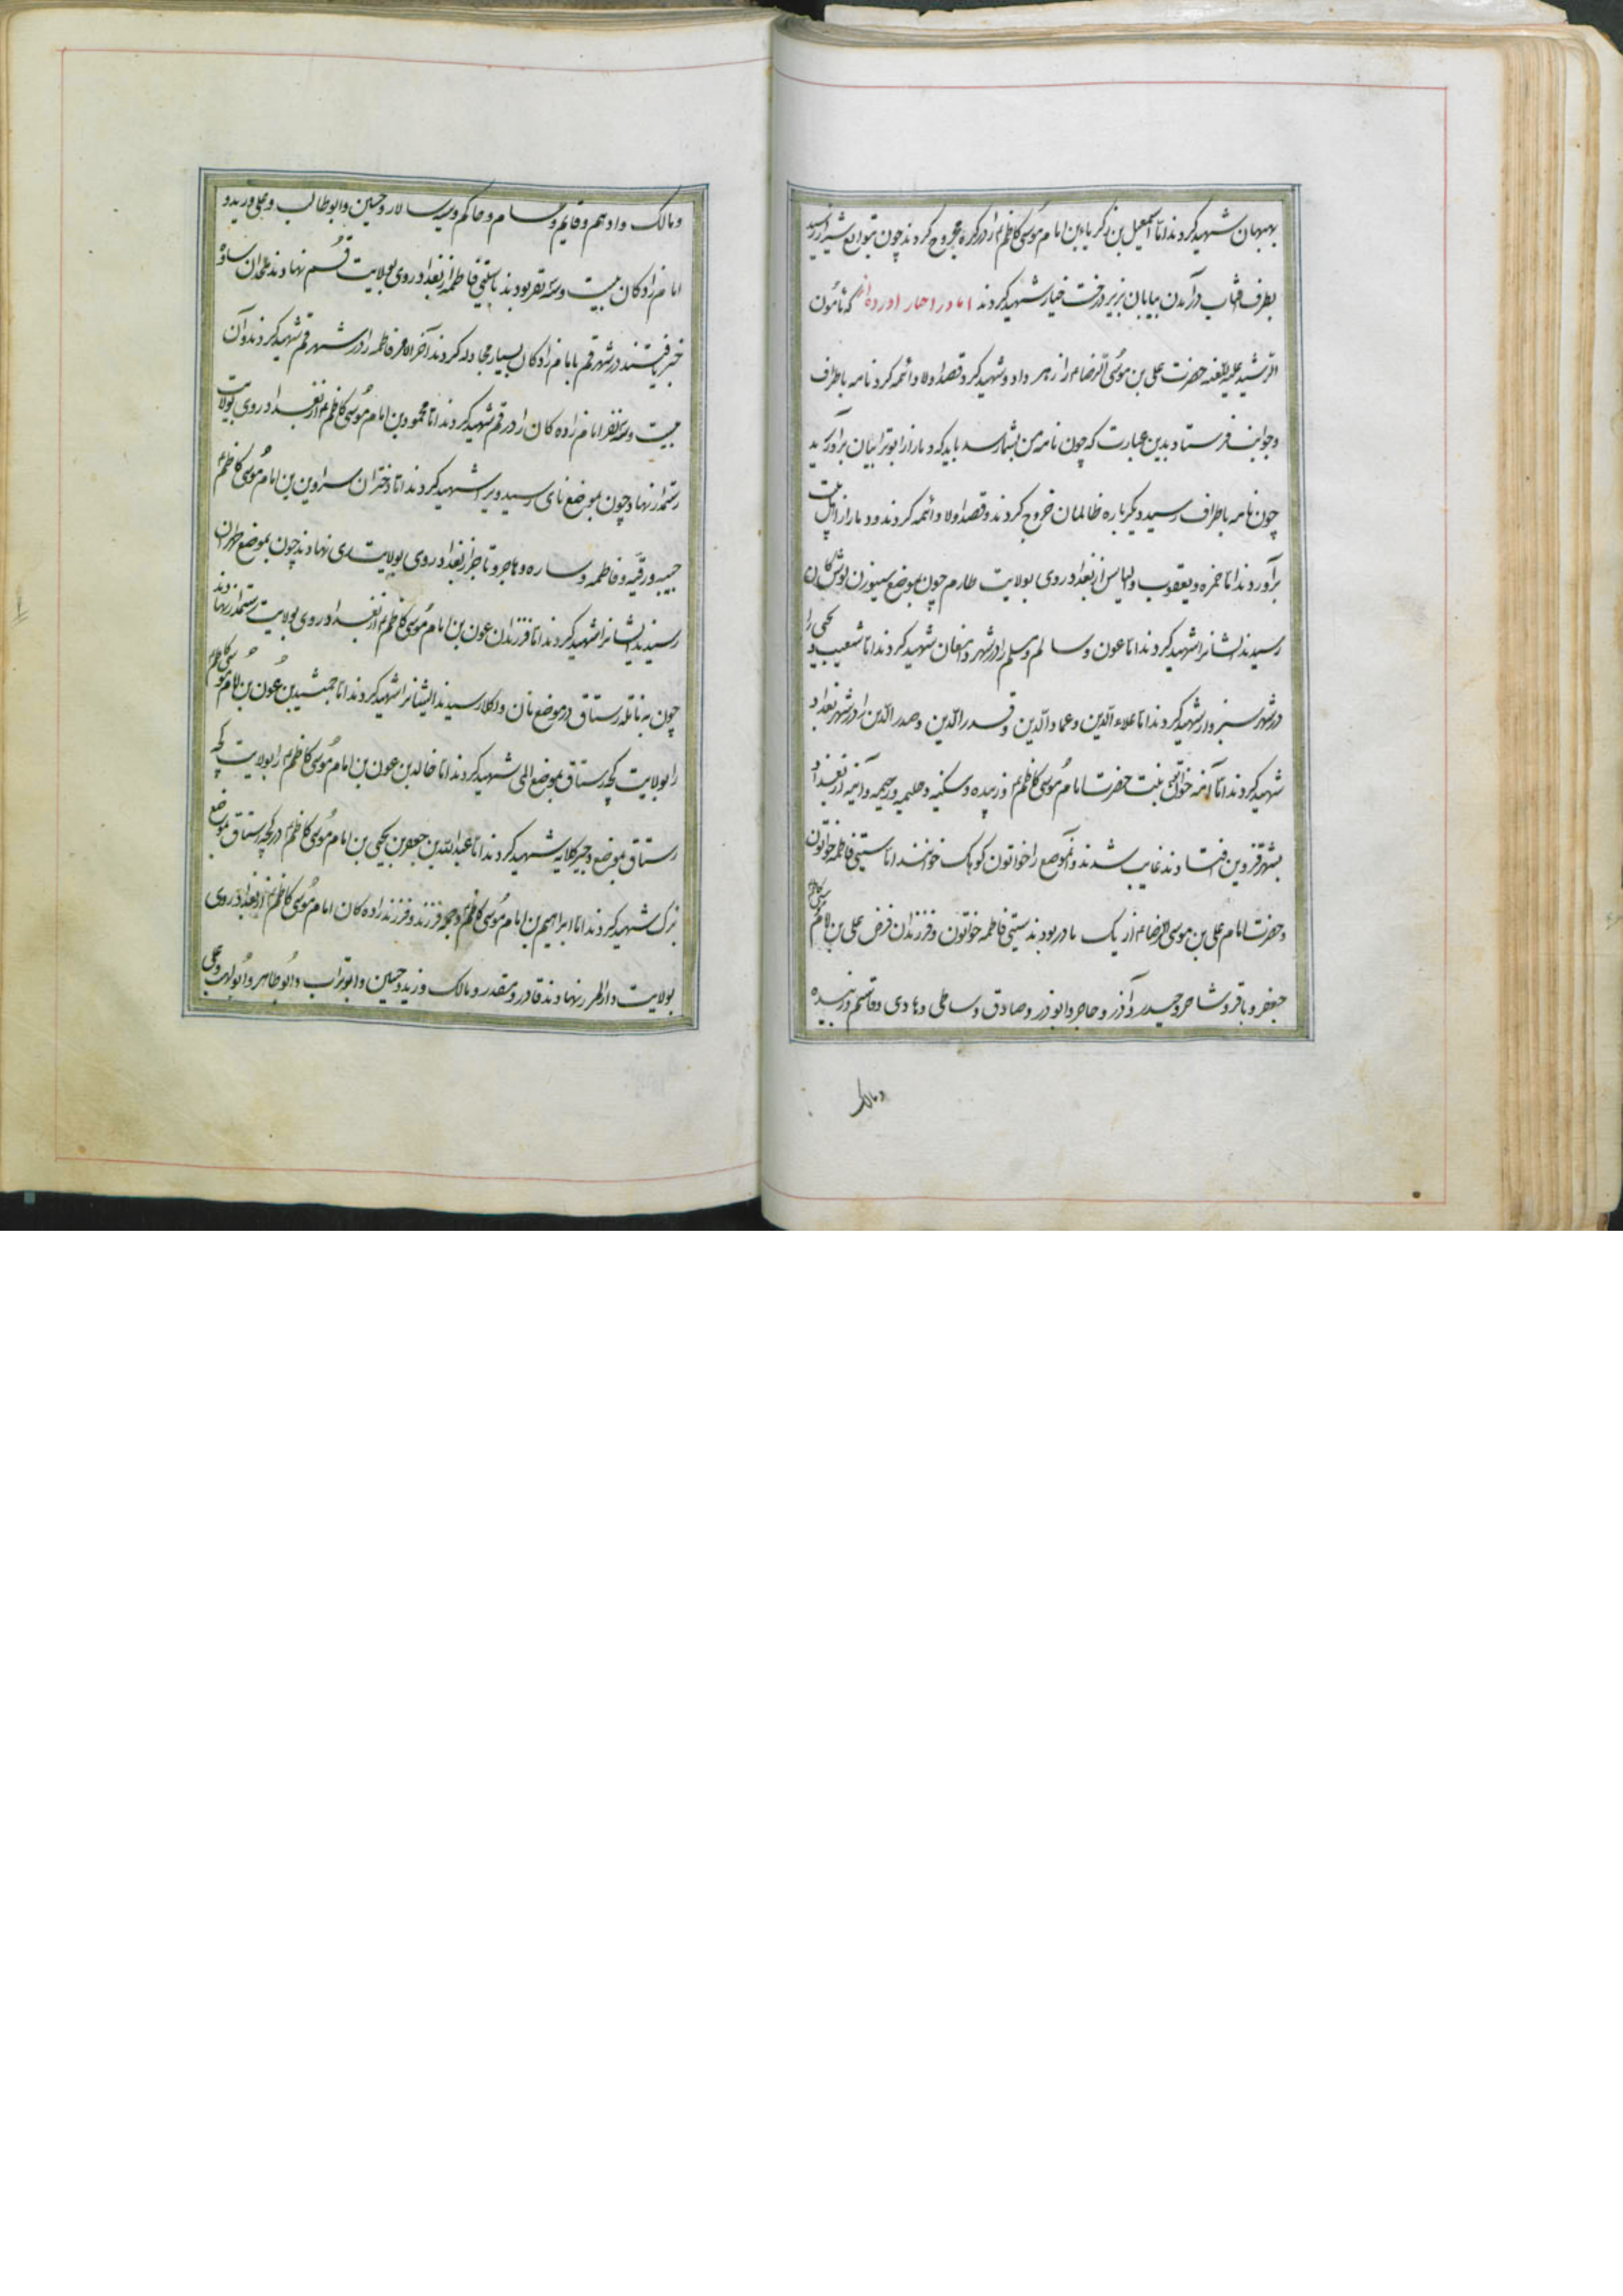 بهبهان شهید کردند اما اسمعیل بن زکریا بن امام موسی کاظم را در کوره مجروح کردند چون بتوابع شیراز رسید
بطرف آفتاب درآمدن بیابان بزیر درخت خیار شهید کردند اما در اخبار آورده‌اند که مامون
الرشید علیه اللعنه حضرت علی بن موسی الرضا را زهر داد و شهید کرد و قصد اولاد ائمه کرد نامه باطراف
و جوانب فرستاد بدین عبارت که چون نامه من بشما رسد باید که دمار از ابوترابیان برآورید
چون نامه باطراف رسید دیگرباره ظالمان خروج کردند و قصد اولاد ائمه کردند و دمار از اهل بیت
برآوردند اما حمزه و یعقوب و الیاس از بغداد روی بولایت طارم چون بموضع
رسیدند ایشانرا شهید کردند اما عون و سالم و سلم را در شهر دامغان شهید کردند اما شعیب و یحیی را
در شهر سبزوار شهید کردند اما علاء الدین و عماد الدین و الدین و صدر الدین را در شهر بغداد
شهید کردند اما آمنه خواتین بنت حضرت امام موسی کاظم و زبیده و سکینه و حلیمه و رحیمه و آمنه از بغداد
بشهر قزوین افتادند غایب شدند و آنموضع را خواتون کوهک خوانند اما ستی فاطمه خواتون
و حضرت امام علی بن موسی الرضا از یک مادر بودند ستی فاطمه خواتون و فرزندان علی بن امام موسی کاظم
جعفر و باقر و و حیدر و آذر و حاجر و ابوذر و صادق و و هادی و قاسم و زبیده
و مالک
و مالک و ادهم و قایم و سام و حاکم و سپه سالار و حسین و ابوطالب و علی و زید و
امام زادگان بیست و سه نفر بودند باستی فاطمه از بغداد روی بولایت قم نهادند ملحدان ساوه
خبر یافتند در شهر قم بامام زادگان بسیار مجادله کردند آخر الامر فاطمه را در شهر قم شهید کردند و آن
بیست و سه نفر امام زاده کان را در قم شهید کردند اما محمود بن امام موسی کاظم از بغداد روی بولایت
رستمدار نهاد چون بموضع نای رسید ویرا شهید کردند اما دختران بن امام موسی کاظم
حبیبه و رقیه و فاطمه و ساره و هاجر و تاجر از بغداد روی بولایت ری نهادند چون بموضع طهران
رسیدند ایشانرا شهید کردند اما فرزندان عون بن امام موسی کاظم از بغداد روی بولایت رستمدار نهادند
چون به ناتله رستاق در موضع نان ودکلا رسیدند ایشانرا شهید کردند اما جمشید بن عون بن امام موسی کاظم
را بولایت کجه رستاق بموضع المی شهید کردند اما خالد بن عون بن امام موسی کاظم را بولایت کجه
رستاق بموضع شهید کردند اما عبدالله بن جعفر بن یحیی بن امام موسی کاظم در کجه رستاق بموضع
شهید کردند اما ابراهیم بن امام موسی کاظم و جمله فرزند و فرزندزاده کان امام موسی کاظم از بغداد روی
بولایت دارالمرز نهادند قادر و مقدر و مالک و زید و حسین و ابوتراب و ابوطاهر و ابولهب و علی